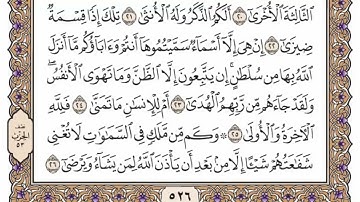 ٱلثَّالِثَةَ ٱلْأُخْرَىٰٓ ٢٠ أَلَكُمُ ٱلذَّكَرُ وَلَهُ ٱلْأُنثَىٰ ٢١ تِلْكَ إِذًا قِسْمَةٌ
ضِيزَىٰٓ ٢٢ إِنْ هِىَ إِلَّآ أَسْمَآءٌ سَمَّيْتُمُوهَآ أَنتُمْ وَءَابَآؤُكُم مَّآ أَنزَلَ
ٱللَّهُ بِهَا مِن سُلْطَٰنٍ ۚ إِن يَتَّبِعُونَ إِلَّا ٱلظَّنَّ وَمَا تَهْوَى ٱلْأَنفُسُ ۖ
وَلَقَدْ جَآءَهُم مِّن رَّبِّهِمُ ٱلْهُدَىٰٓ ٢٣ أَمْ لِلْإِنسَٰنِ مَا تَمَنَّىٰ ٢٤ فَلِلَّهِ
ٱلْءَاخِرَةُ وَٱلْأُولَىٰ ٢٥ ۞ وَكَم مِّن مَّلَكٍ فِى ٱلسَّمَٰوَٰتِ لَا تُغْنِى
شَفَٰعَتُهُمْ شَيْـًٔا إِلَّا مِنۢ بَعْدِ أَن يَأْذَنَ ٱللَّهُ لِمَن يَشَآءُ وَيَرْضَىٰٓ ٢٦
٥٢٦